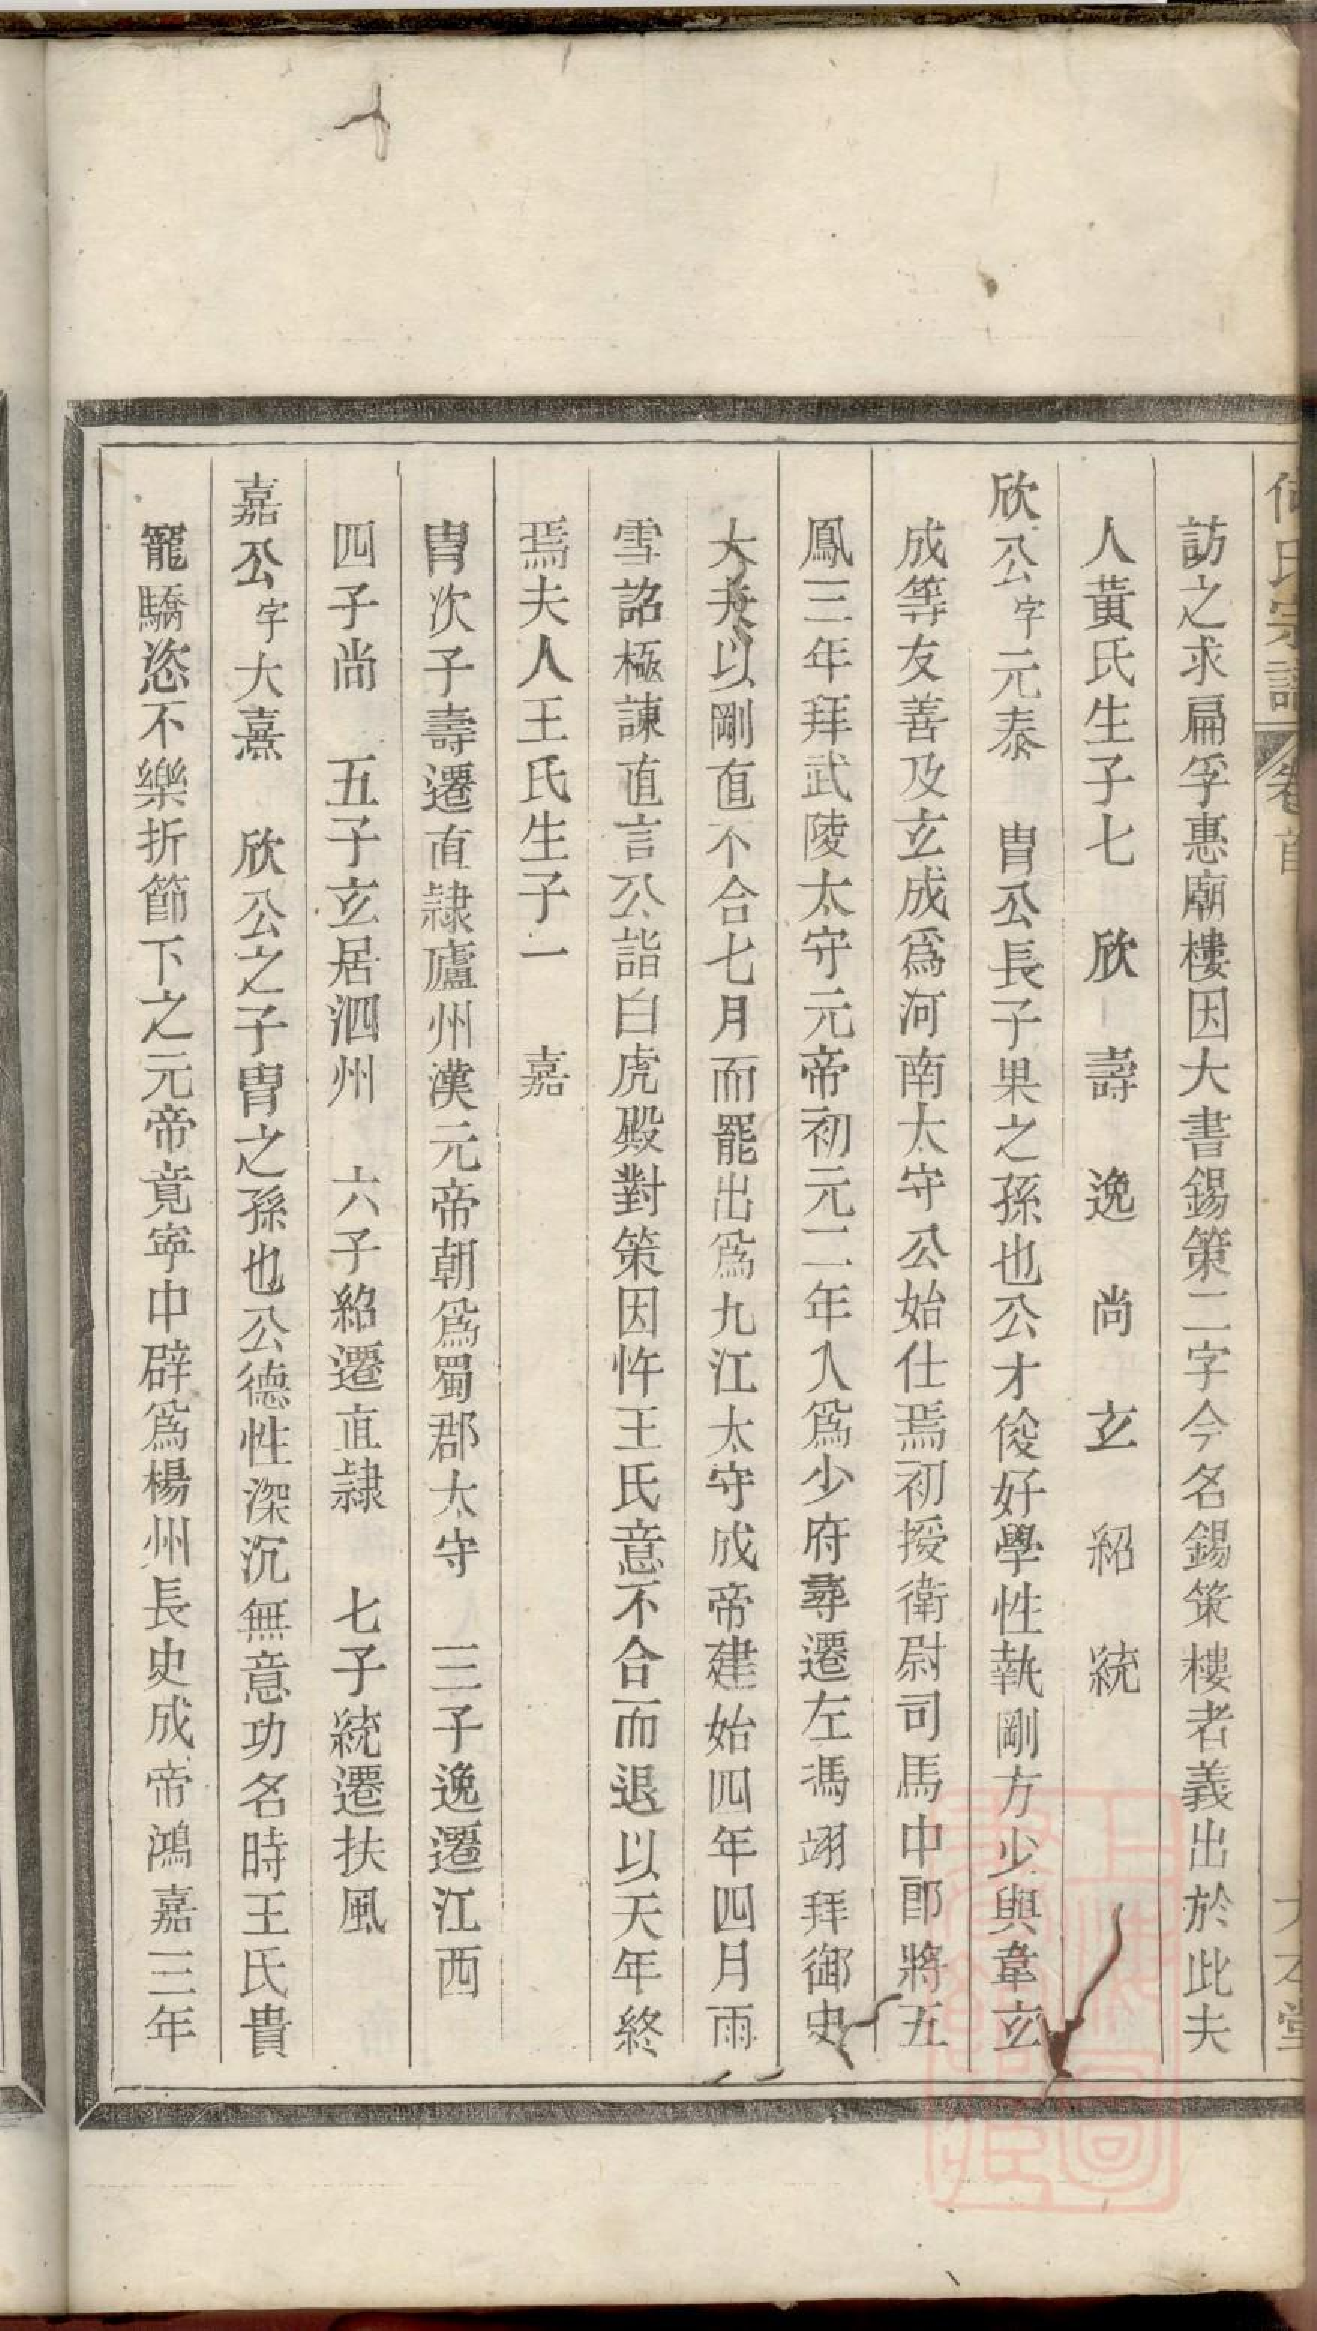 氏宗譜 卷首
訪之求扁孚惠廟樓因大書錫策二字今名錫策樓者義出於此夫
人黃氏生子七 欣 壽 逸 尚 玄 紹 統
欣公字元泰 胄公長子果之孫也公才俊好學性執剛方少與韋玄
成等友善及玄成爲河南太守公始仕焉初授衛尉司馬中郎將五
鳳三年拜武陵太守元帝初元二年入爲少府尋遷左馮翊拜御史
大夫以剛直不合七月而罷出爲九江太守成帝建始四年四月雨
雪詔極諫直言公詣白虎殿對策因忤王氏意不合而退以天年終
焉夫人王氏生子一 嘉
胄次子壽遷直隸廬州漢元帝朝爲蜀郡太守 三子逸遷江西
四子尚 五子玄居泗州 六子紹遷直隸 七子統遷扶風
嘉公字大熹 欣公之子胄之孫也公德性深沉無意功名時王氏貴
寵驕恣不樂折節下之元帝竟寧中辟爲楊州長史成帝鴻嘉三年